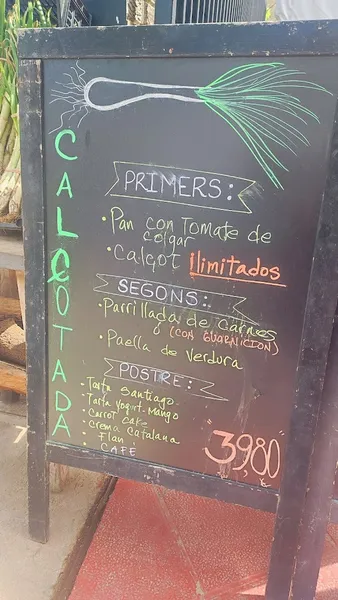 CALÇOTADA
PRIMERS:
• Pan con Tomate de
colgar
• Calçot Ilimitados
SEGONS:
• Parrillada de Carnes
(CON GUARNICION) o
• Paella de Verdura
POSTRE:
• Tarta Santiago
• Tarta yogurt-Mango
• Carrot Cake
• Crema Catalana
• Flan
• CAFÉ
39,80